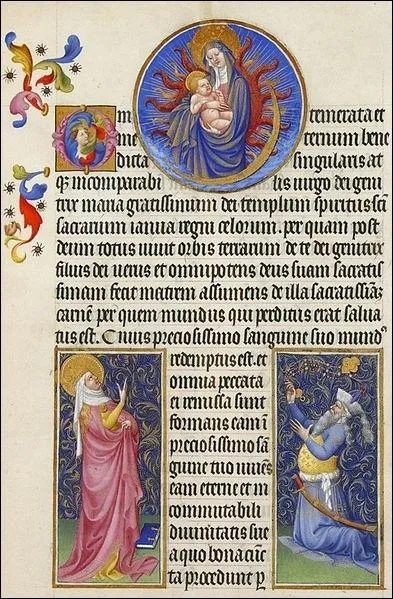 O in temerata et
in e ternum bene
dicta singularis at
qꝫ incomparabi lis uirgo dei geni
trix maria gratissimum dei templum spiritus sc̄i
sacrarium ianua regni celorum. per quam post
deum totus uiuit orbis terrarum de te dei genitrix
filius dei uerus et omnipotens deus suam sacratis
simam fecit matrem assumens de illa sacratissīā
carnem per quem mundus qui perditus erat salua
tus est. Cuius preciosissimo sanguine suo mundꝰ
redemptus est. et
omnia peccata
ei remissa sunt
formans eam ī
preciosissimo sā
guine tuo
eam eterne et in
commutabili
diuinitatis sue
a quo bona cūc
ta procedunt ꝑ